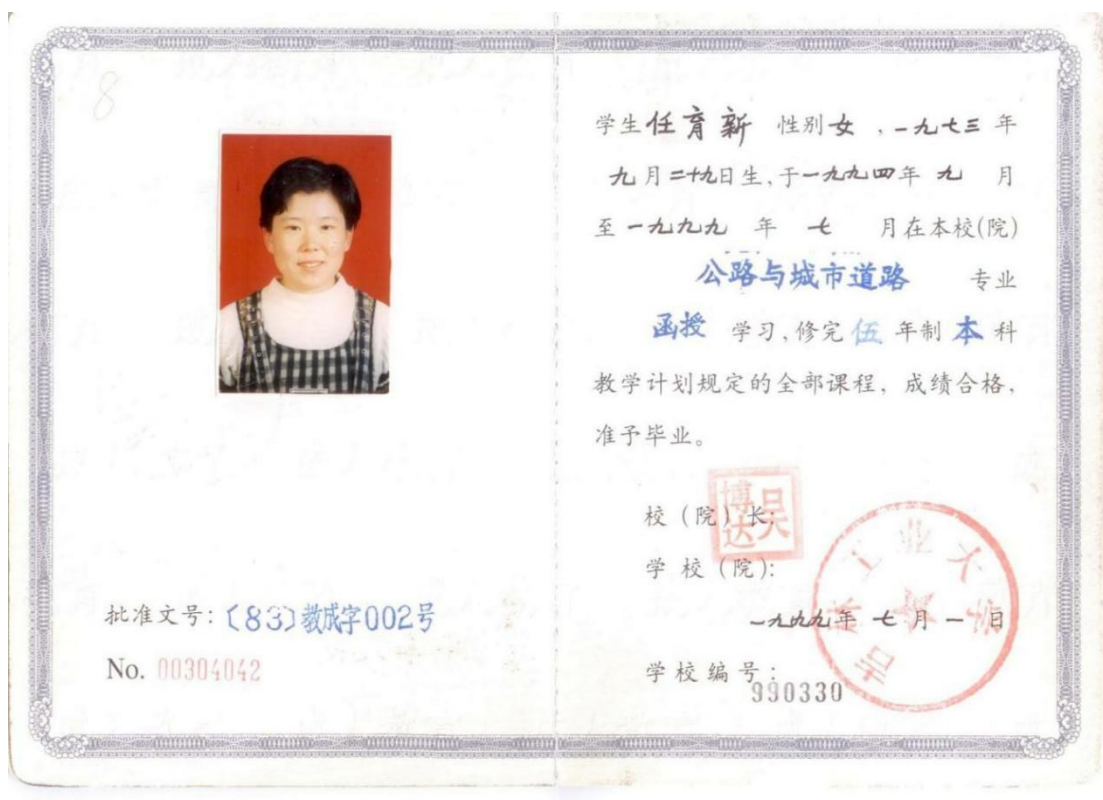 8
批准文号:〔83〕教成字002号
No. 00304042
学生任育新 性别女 ,一九七三 年
九月二十九日生,于一九九四年 九 月
至一九九九 年 七 月在本校(院)
公路与城市道路 专业
函授 学习,修完伍年制本科
教学计划规定的全部课程,成绩合格,
准予毕业。
校(院)长:
吴博达
学校(院):
吉林工业大学
一九九九年 七月 一 日
学校编号:
990330